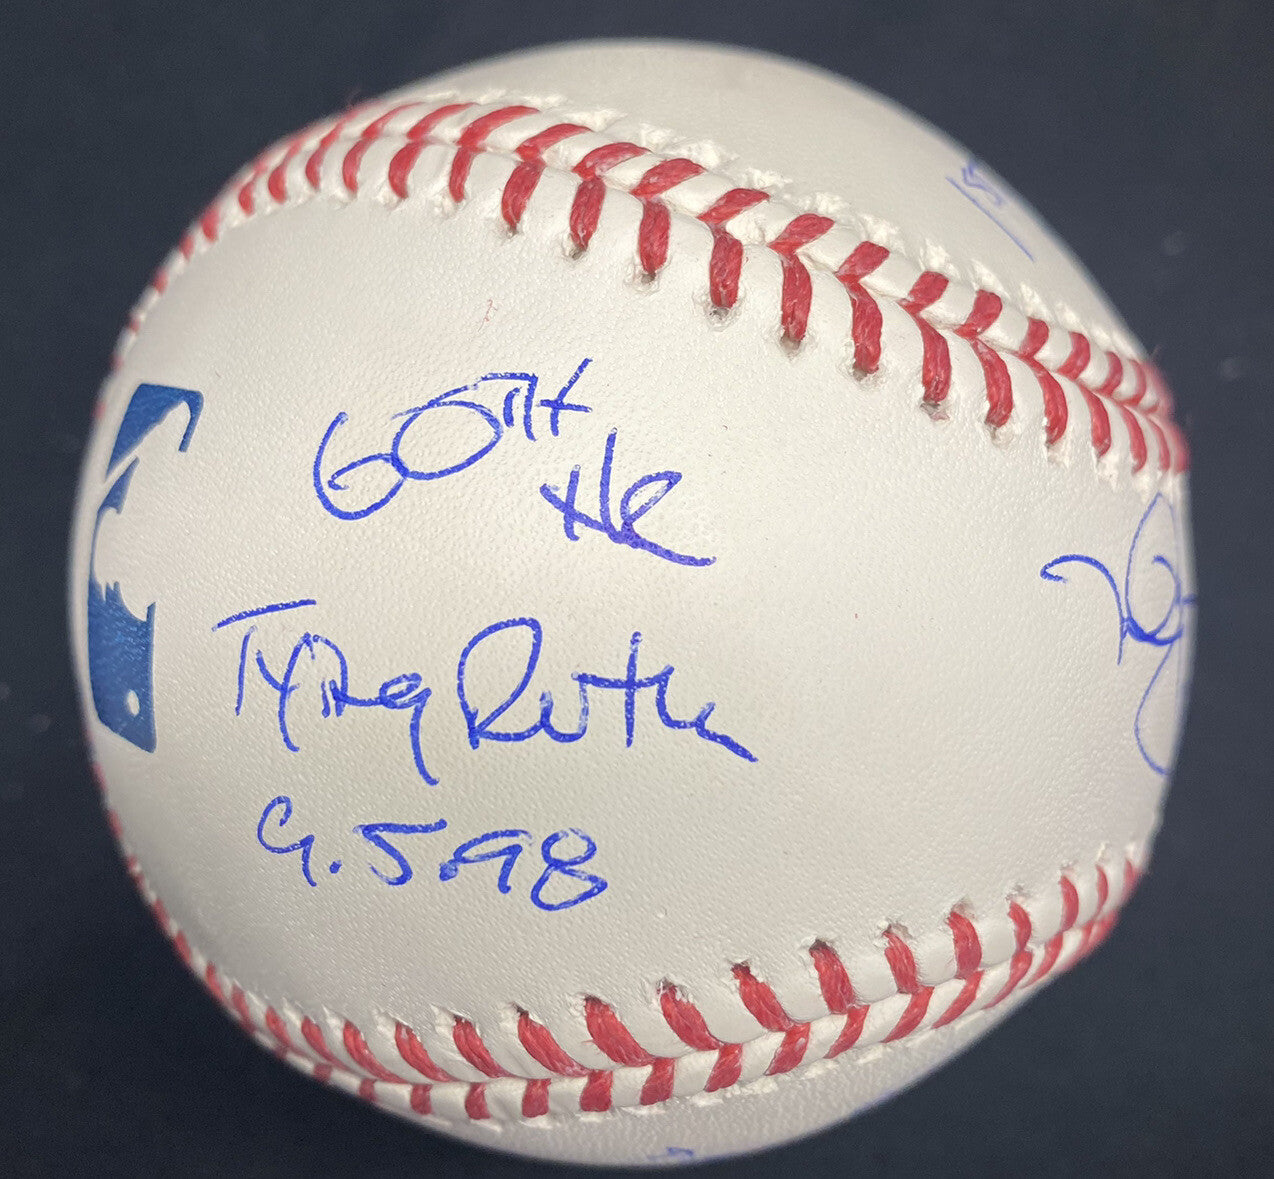 60th
HR
Tying Ruth
9.5.98